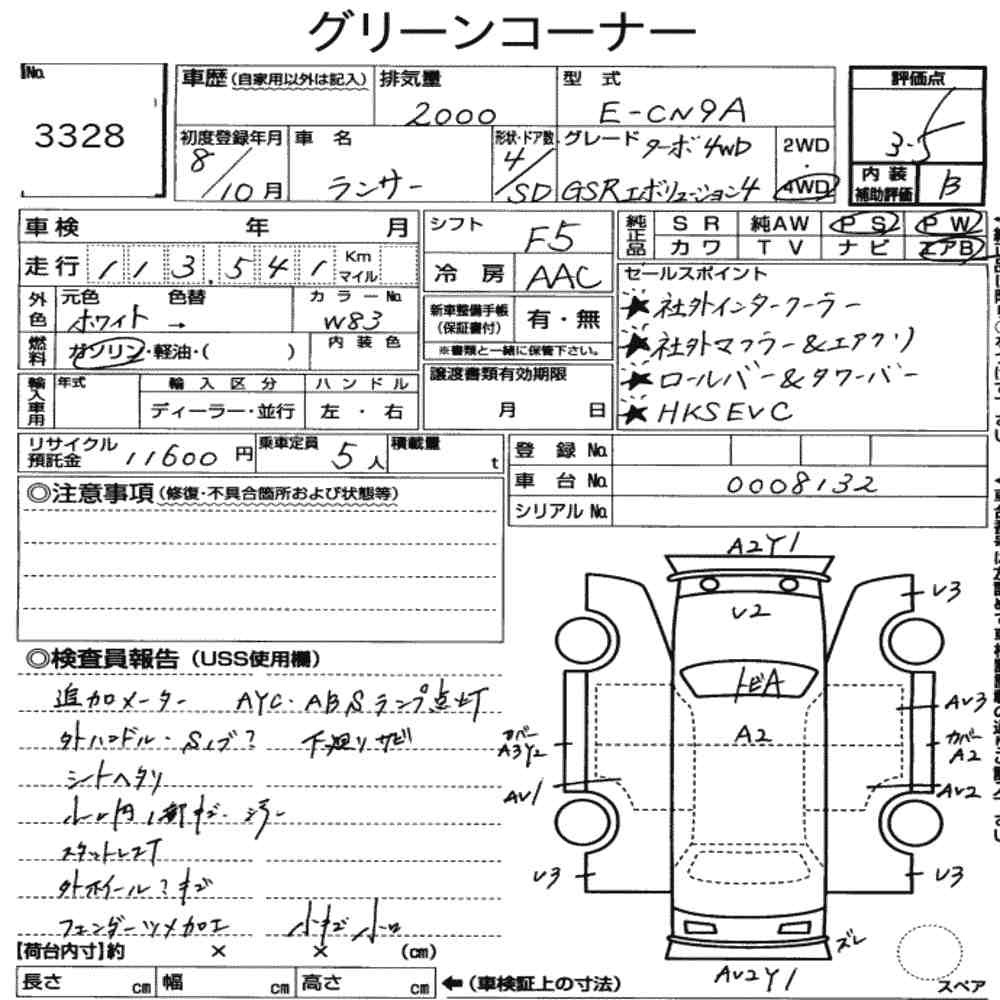 グリーンコーナー
No.
3328
車歴 (自家用以外は記入)
排気量
2000
型 式
E-CN9A
初度登録年月
8/10月
車 名
ランサー
形状・ドア数
4/SD
グレード ターボ 4WD
GSRエボリューション4
2WD
・
4WD
評価点
3.5
内装
補助評価
B
車検 年 月
走行 113,541 Km マイル
外色
元色 色替
ホワイト →
カラーNo.
W83
燃料
ガソリン・軽油・( )
内 装 色
輸入車用
年式
輸 入 区 分
ディーラー・並行
ハ ン ド ル
左 ・ 右
シフト
F5
冷 房
AAC
新車整備手帳
(保証書付)
有・無
※書類と一緒に保管下さい。
譲渡書類有効期限
月 日
純正品
S R 純AW P S P W
カ ワ T V ナ ビ エアB
セールスポイント
★社外インタークーラー
★社外マフラー&エアクリ
★ロールバー&タワーバー
★HKSEVC
リサイクル預託金 11600 円
乗車定員 5 人
積載量 t
登 録 No.
車 台 No. 0008132
シリアル No.
◎注意事項 (修復・不具合箇所および状態等)
◎検査員報告 (USS使用欄)
追加メーター AYC・ABSランプ点灯
外ハンドル・Sノブ? 下廻りサビ
シートヘタリ
スタットレスT
外ホイール?キズ
フェンダーツメ加工 小キズ
【荷台内寸】約 × × (cm)
長さ cm 幅 cm 高さ cm
←(車検証上の寸法)
A2Y1
U2
U3
トビA
A2
AU3
カバー
A3Y2
カバー
A2
AU1
AU2
U3
U3
ズレ
AU2Y1
スペア